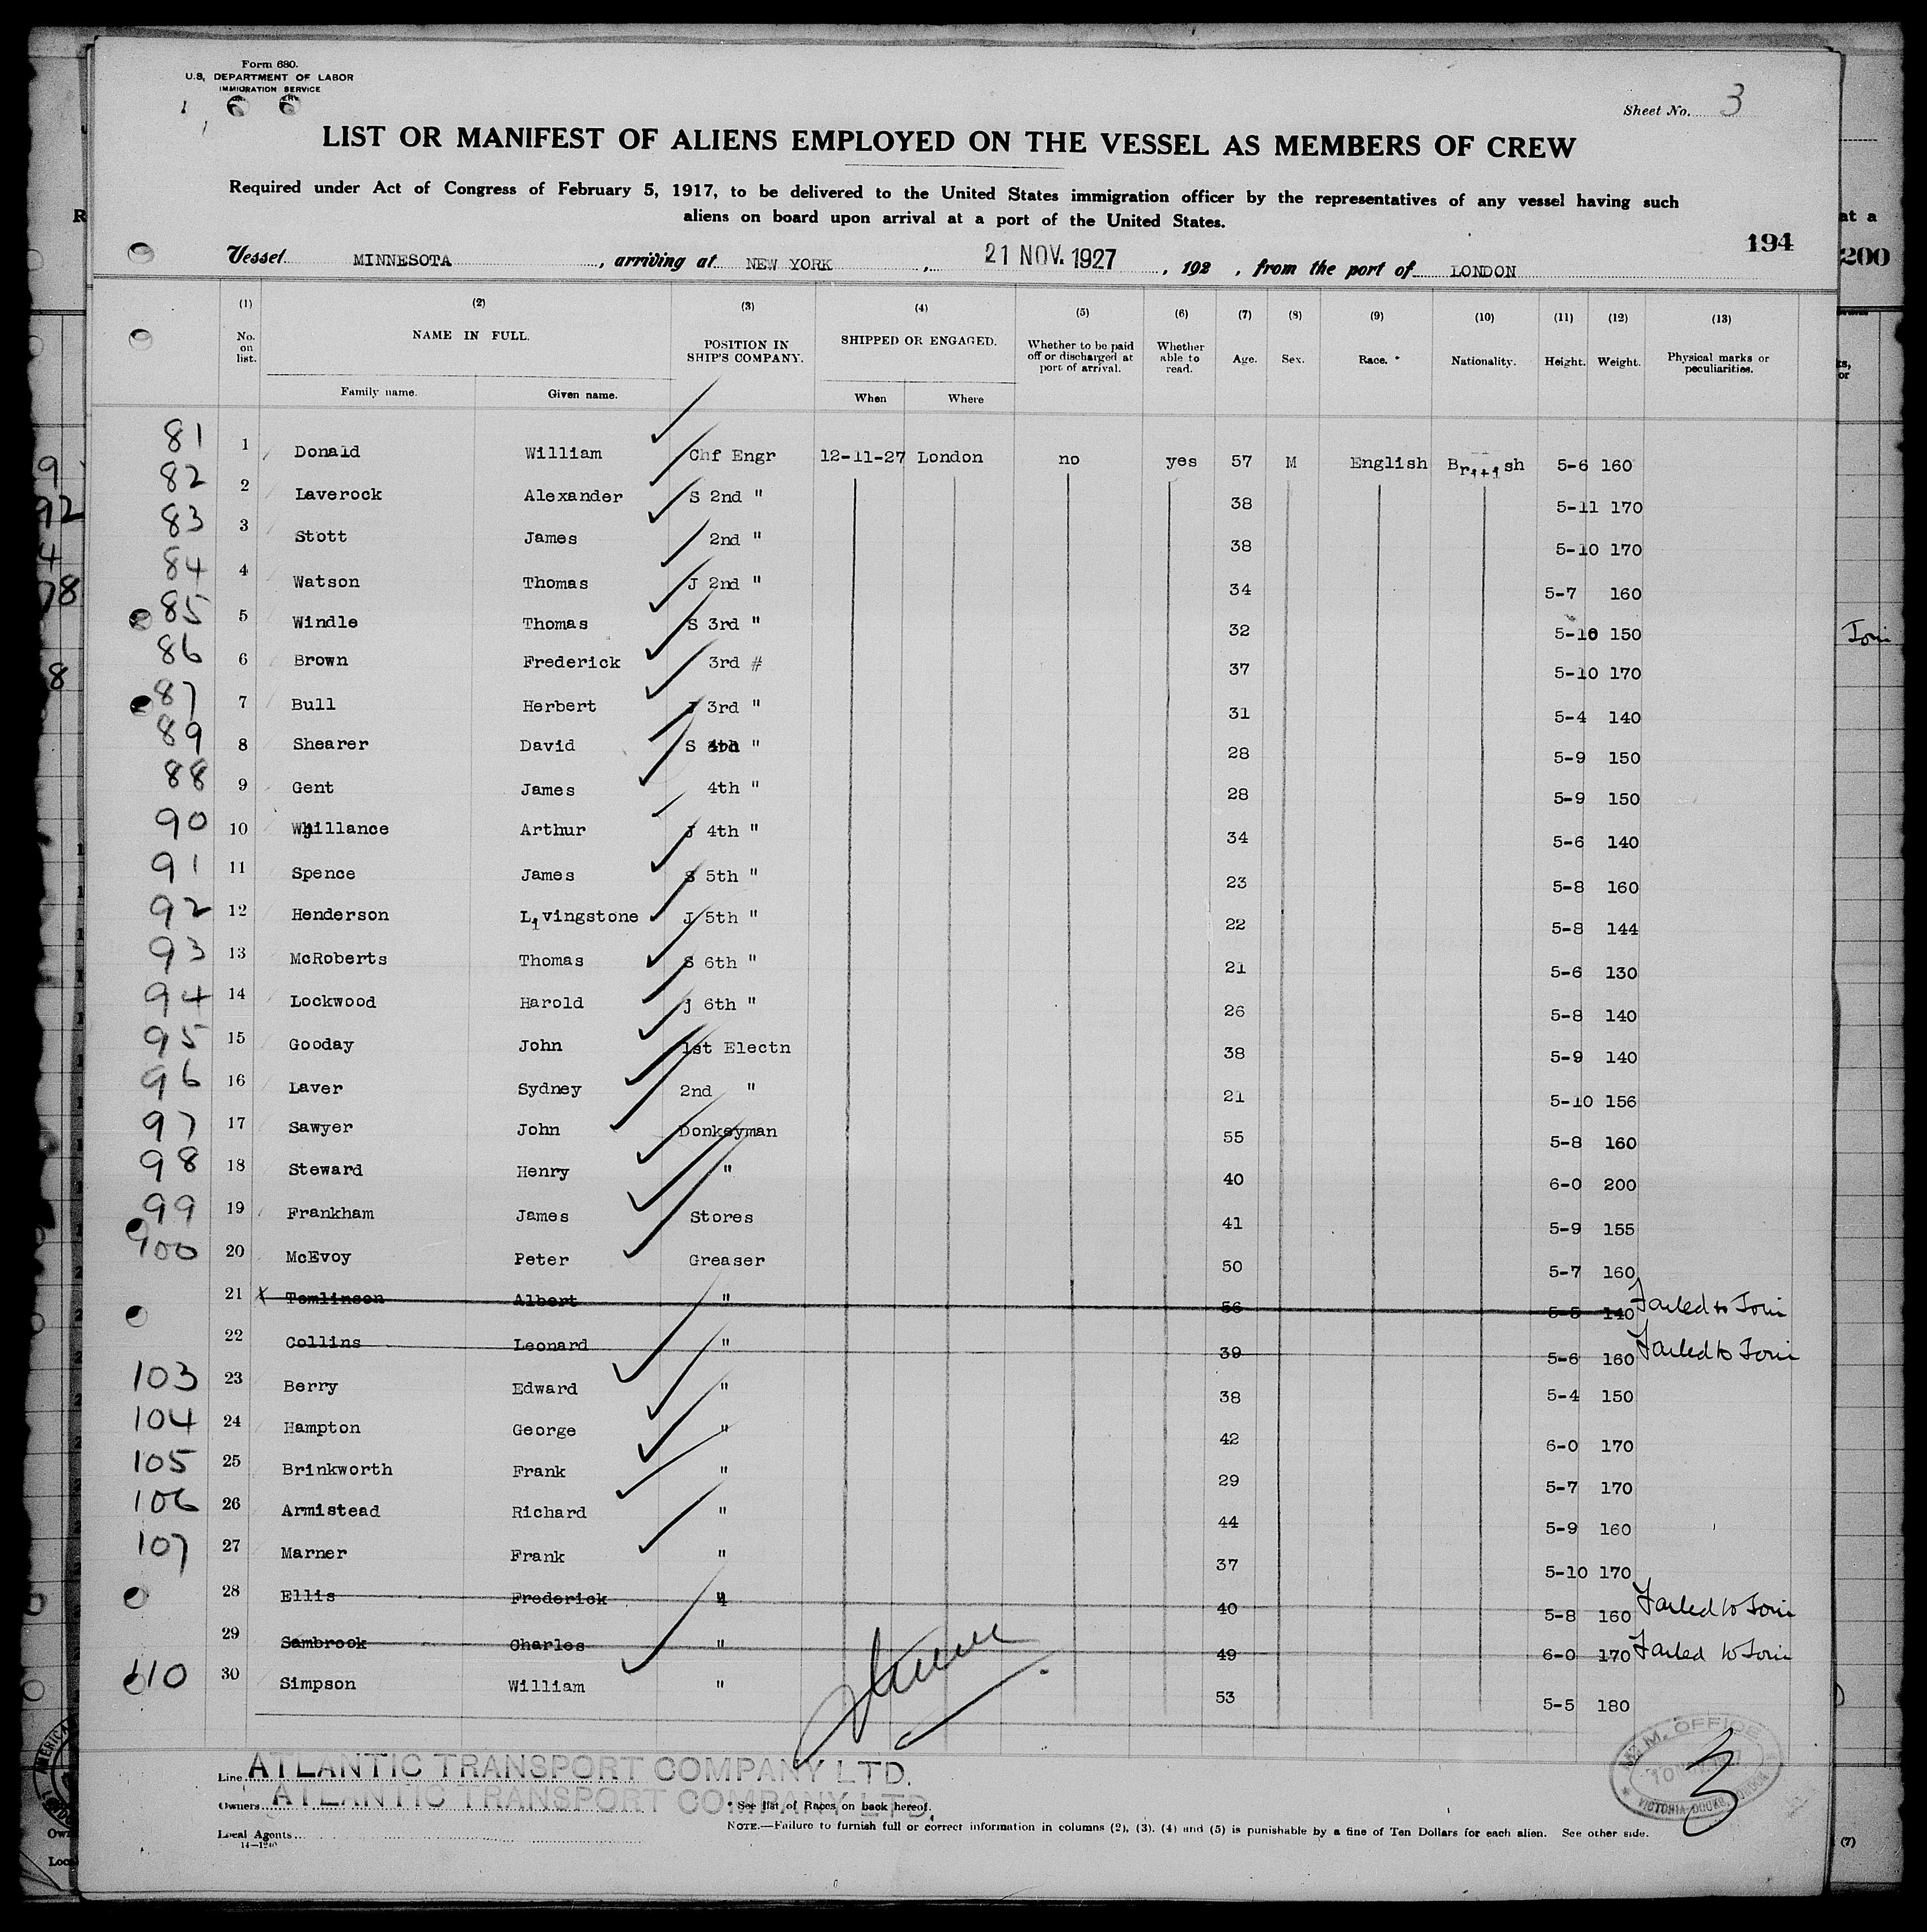 Form 680.
U.S. DEPARTMENT OF LABOR
IMMIGRATION SERVICE
Sheet No. 3
LIST OR MANIFEST OF ALIENS EMPLOYED ON THE VESSEL AS MEMBERS OF CREW
Required under Act of Congress of February 5, 1917, to be delivered to the United States immigration officer by the representatives of any vessel having such
aliens on board upon arrival at a port of the United States.
194
Vessel MINNESOTA, arriving at NEW YORK, 21 NOV. 1927, 192 , from the port of LONDON
(1) (2) (3) (4) (5) (6) (7) (8) (9) (10) (11) (12) (13)
No. on list. NAME IN FULL. POSITION IN SHIP'S COMPANY. SHIPPED OR ENGAGED. Whether to be paid off or discharged at port of arrival. Whether able to read. Age. Sex. Race. * Nationality. Height. Weight. Physical marks or peculiarities.
Family name. Given name. When Where
81 1 Donald William Chf Engr 12-11-27 London no yes 57 M English British 5-6 160
82 2 Laverock Alexander S 2nd " 38 5-11 170
83 3 Stott James 2nd " 38 5-10 170
84 4 Watson Thomas J 2nd " 34 5-7 160
85 5 Windle Thomas S 3rd " 32 5-10 150
86 6 Brown Frederick 3rd # 37 5-10 170
87 7 Bull Herbert J 3rd " 31 5-4 140
89 8 Shearer David S 4th " 28 5-9 150
88 9 Gent James 4th " 28 5-9 150
90 10 Whillance Arthur J 4th " 34 5-6 140
91 11 Spence James S 5th " 23 5-8 160
92 12 Henderson Livingstone J 5th " 22 5-8 144
93 13 McRoberts Thomas S 6th " 21 5-6 130
94 14 Lockwood Harold J 6th " 26 5-8 140
95 15 Gooday John 1st Electn 38 5-9 140
96 16 Laver Sydney 2nd " 21 5-10 156
97 17 Sawyer John Donkeyman 55 5-8 160
98 18 Steward Henry " 40 6-0 200
99 19 Frankham James Stores 41 5-9 155
900 20 McEvoy Peter Greaser 50 5-7 160
21 x Tomlinson Albert " 56 5-5 140 Failed to Join
22 Collins Leonard " 39 5-6 160 Failed to Join
103 23 Berry Edward " 38 5-4 150
104 24 Hampton George " 42 6-0 170
105 25 Brinkworth Frank " 29 5-7 170
106 26 Armistead Richard " 44 5-9 160
107 27 Marner Frank " 37 5-10 170
28 Ellis Frederick " 40 5-8 160 Failed to Join
29 Sambrook Charles " 49 6-0 170 Failed to Join
110 30 Simpson William " 53 5-5 180
Line ATLANTIC TRANSPORT COMPANY LTD.
Owners ATLANTIC TRANSPORT COMPANY LTD.
* See list of Races on back hereof.
Local Agents
14-1240
NOTE.—Failure to furnish full or correct information in columns (2), (3), (4) and (5) is punishable by a fine of Ten Dollars for each alien. See other side.
M.M. OFFICE
VICTORIA DOCKS, LONDON
3